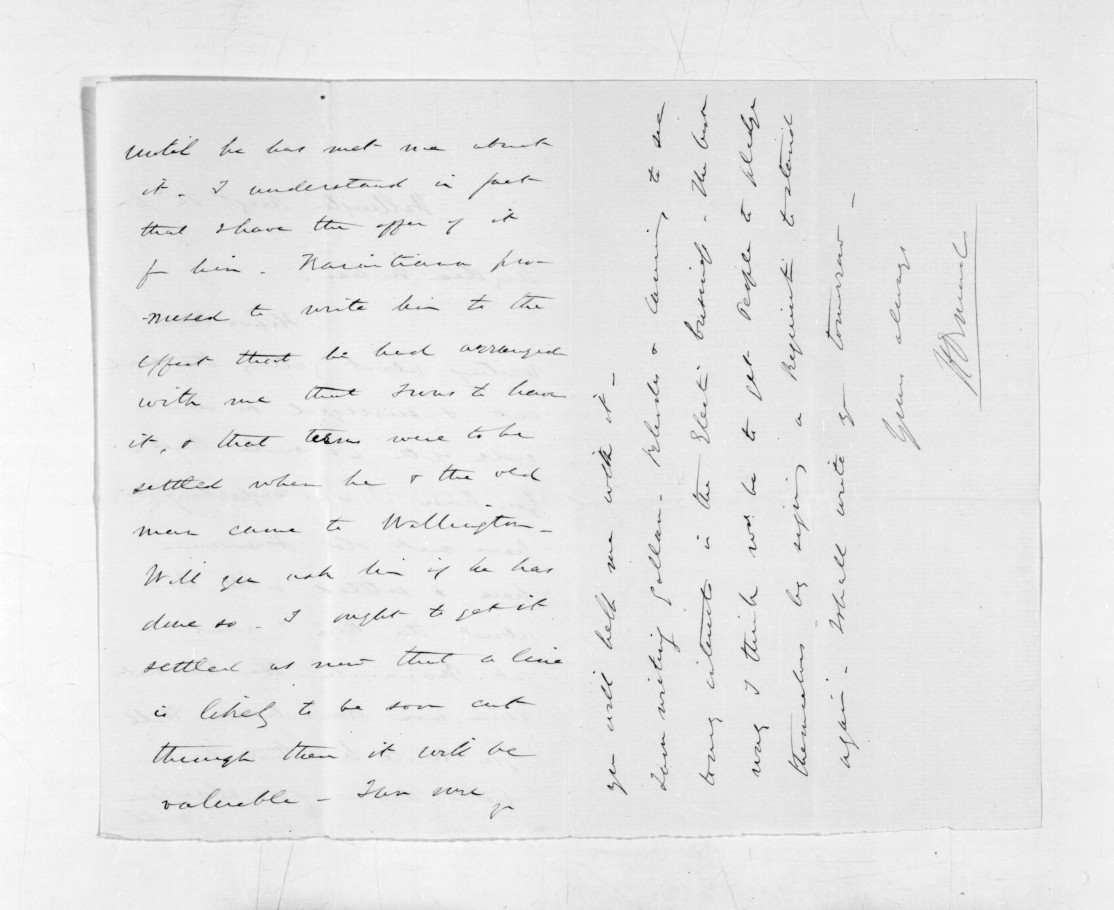 until he has met me about
it. I understand in fact
that I have the offer of it
for him. Karaitiana pro
-mised to write him to the
effect that he had arranged
with me that I was to have
it, & that terms were to be
settled when he & the old
man came to Wellington -
Will you ask him if he has
done so. I ought to get it
settled as now that a line
is likely to be soon cut
through then it will be
valuable - I am sure
you will help me with it -
I am writing Gollan. & to see
interests in the Electn business. The best
way I think wd be to get people to pledge
themselves by signing a Requisitn to stand
again. I shall write you tomorrow -
Yours always